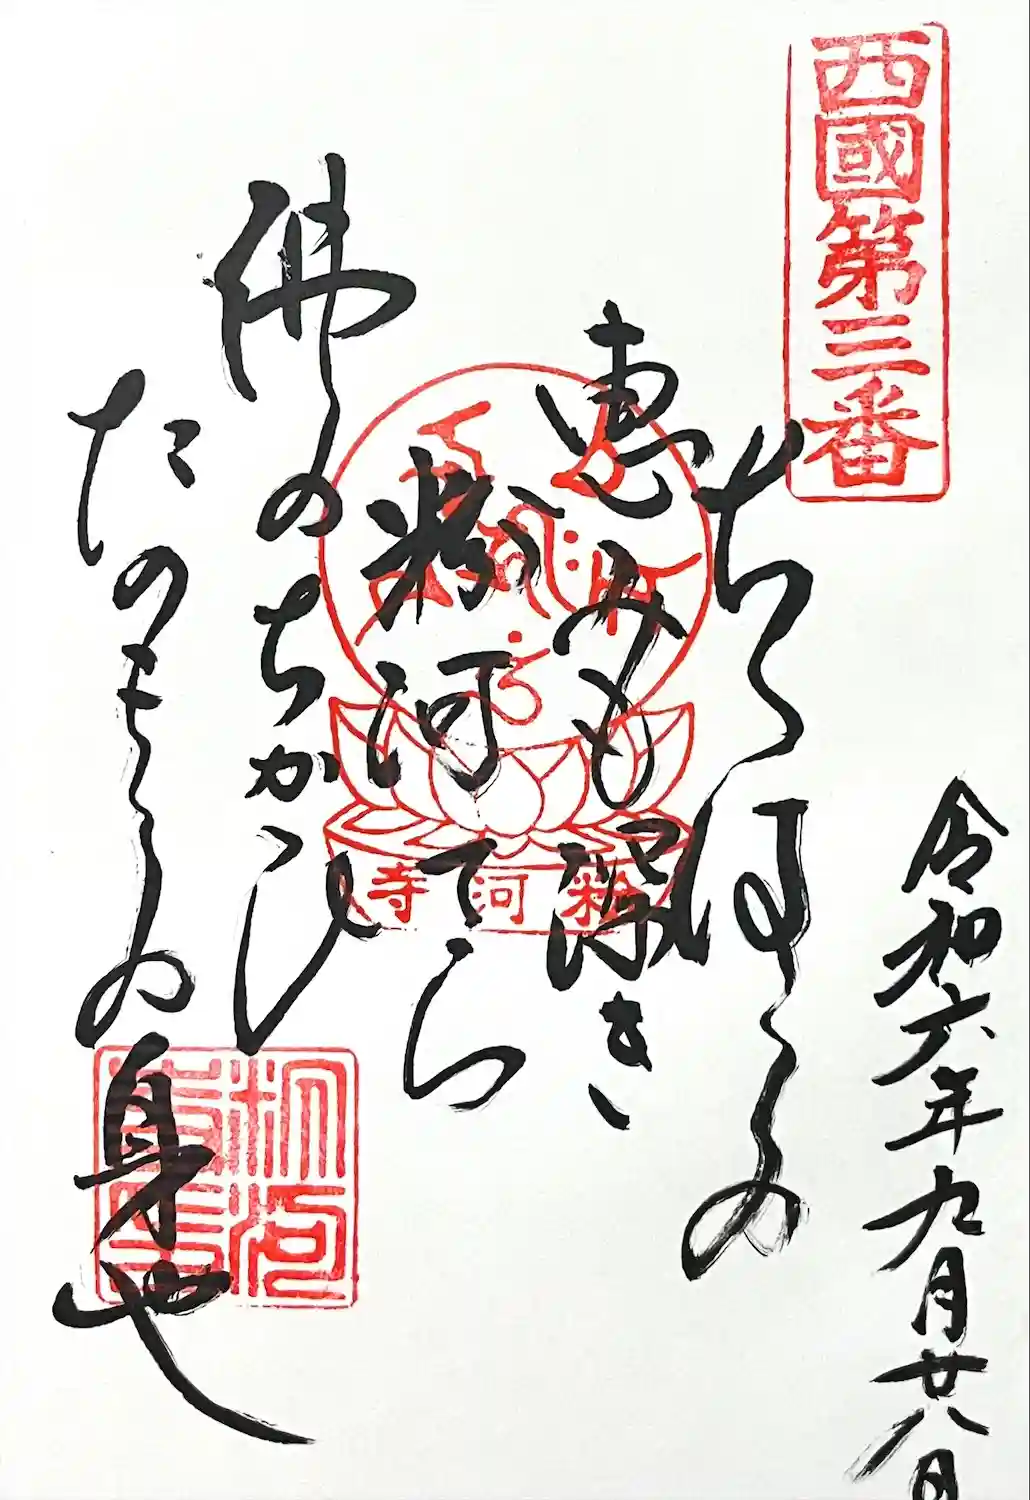 西國第三番
令和六年九月廿八日
ちゝはゝの
恵みも深き
粉河てら
佛のちかひ
たのもしの身也
粉河寺
粉河